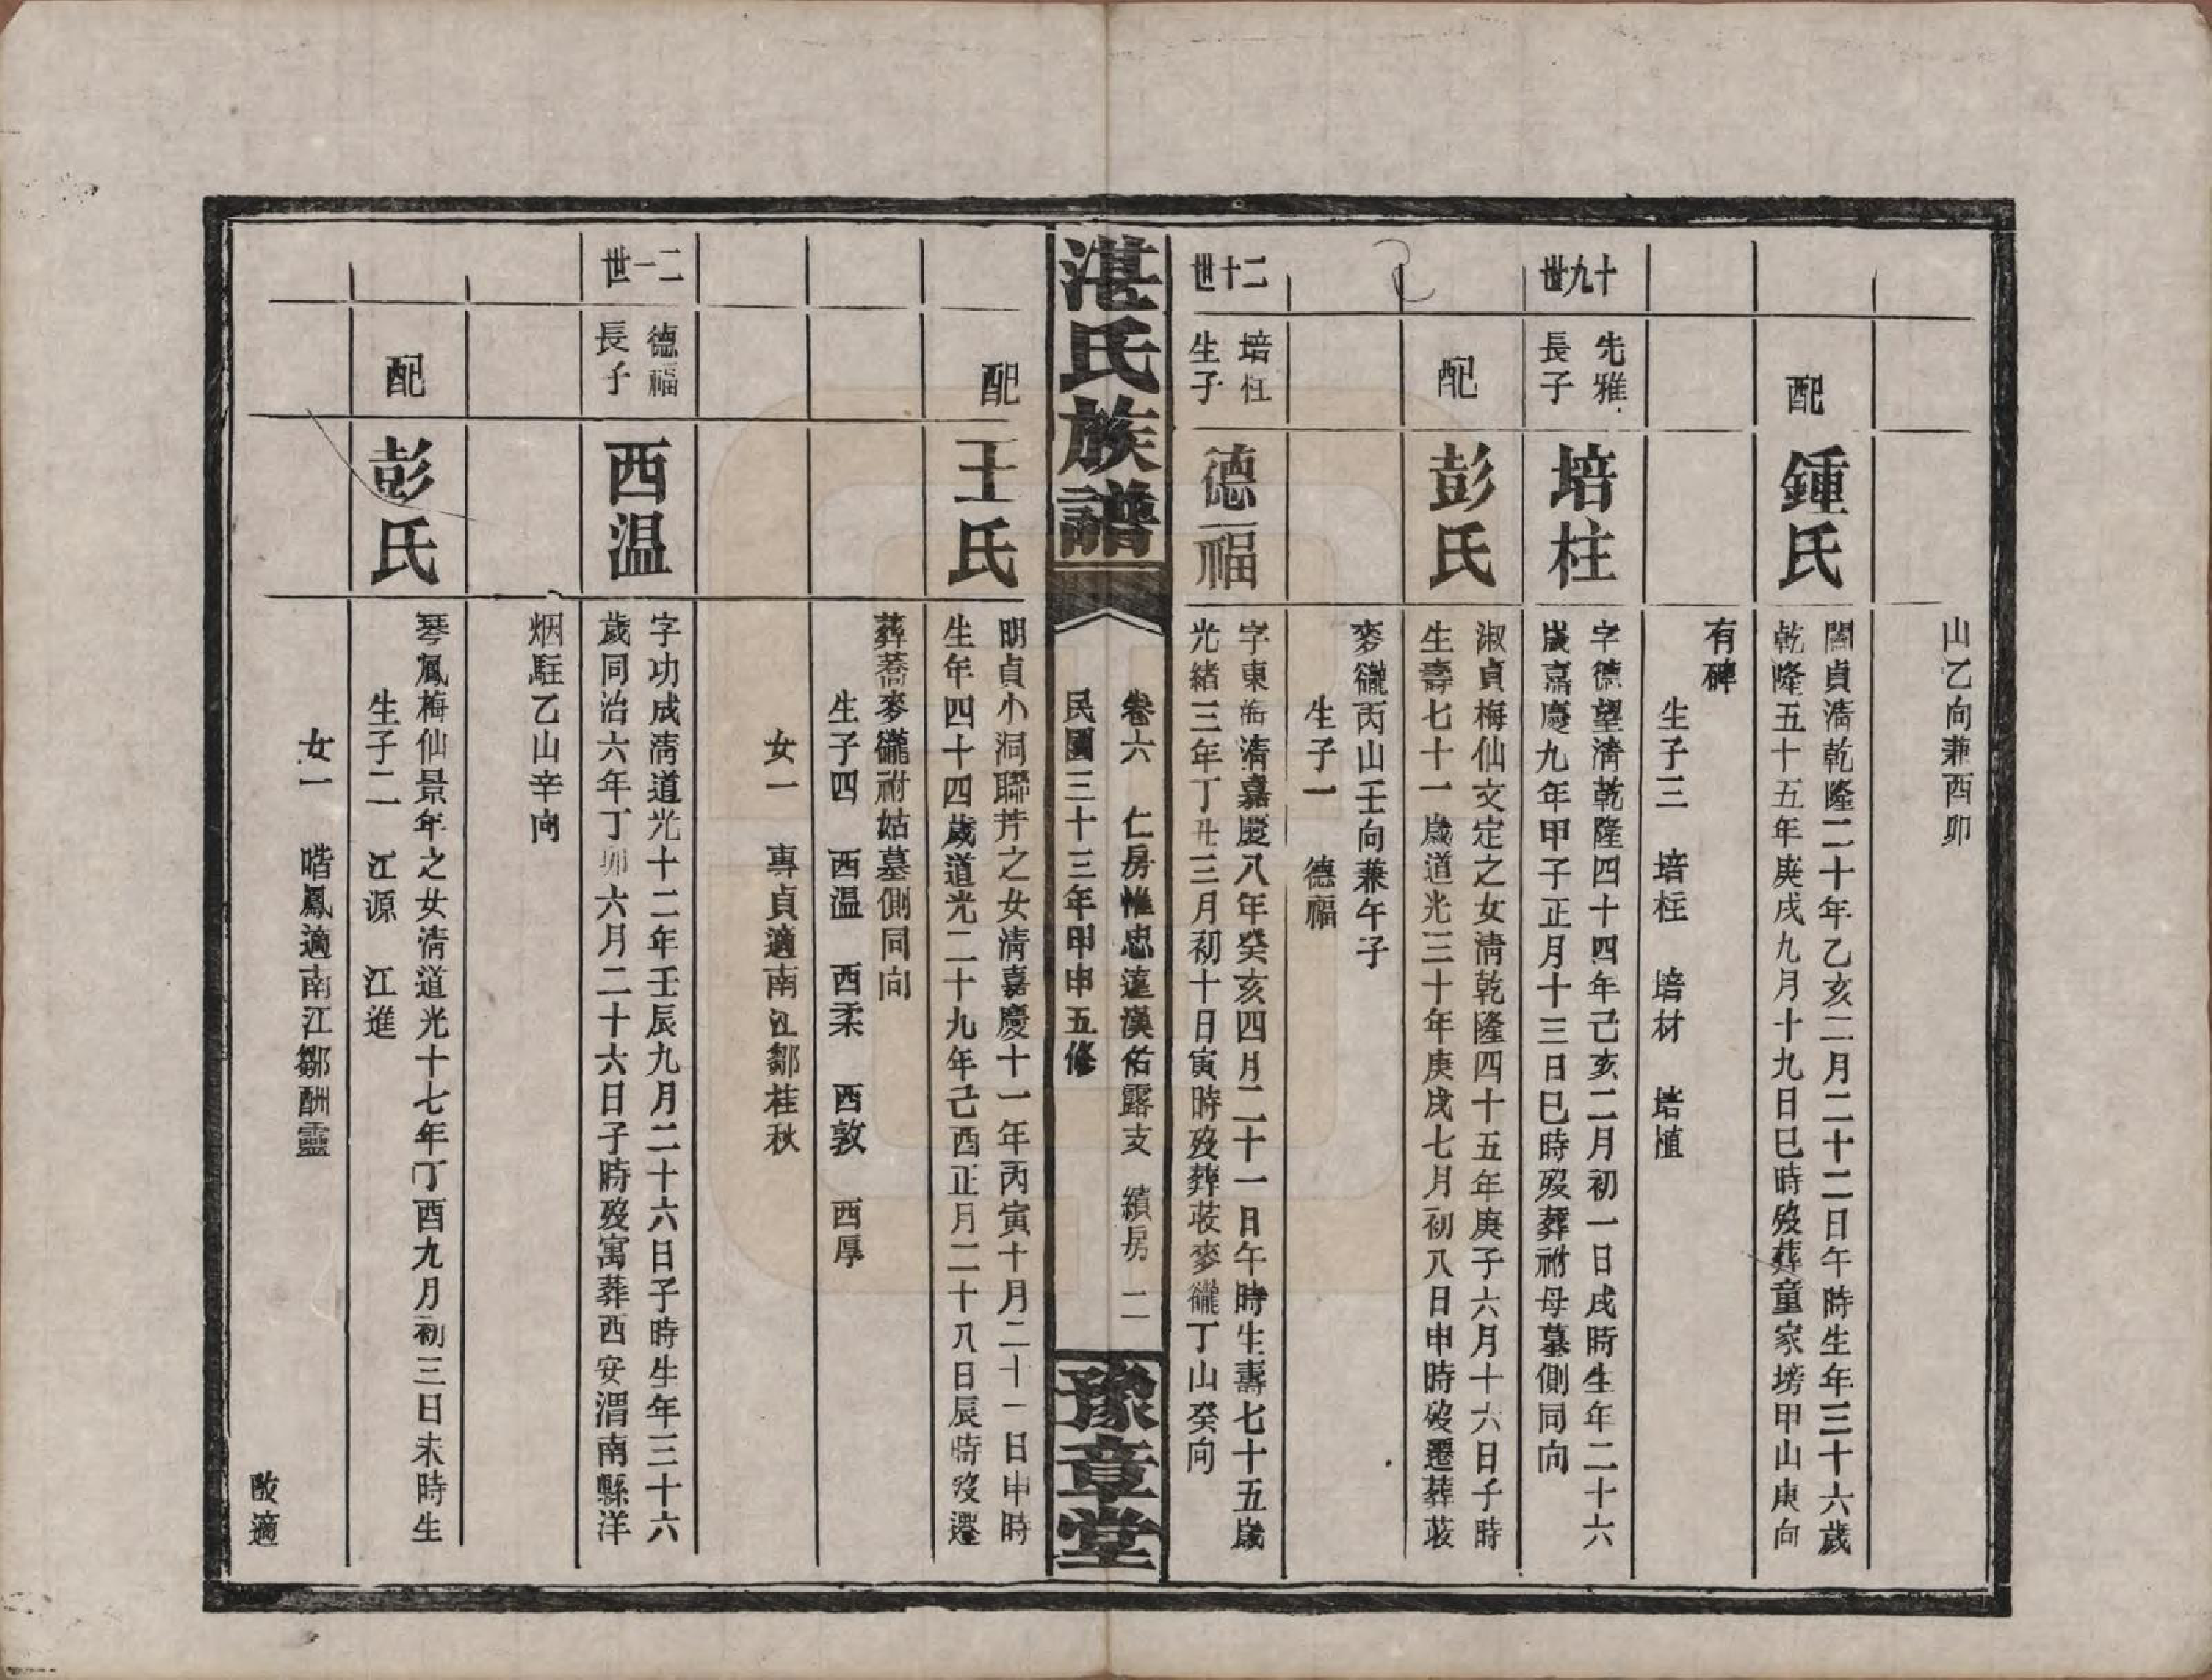 山乙向兼酉卯
配
鍾氏
閤貞清乾隆二十年乙亥二月二十二日午時生年三十六歲
乾隆五十五年庚戌九月十九日巳時歿葬童家塝甲山庚向
有碑
生子三　培柱　培材　培植
十九世
先雅
長子
培柱
字德望淸乾隆四十四年己亥二月初一日戌時生年二十六
歲嘉慶九年甲子正月十三日巳時歿葬祔母墓側同向
配
彭氏
淑貞梅仙文定之女淸乾隆四十五年庚子六月十六日子時
生壽七十一歲道光三十年庚戌七月初八日申時歿遷葬荍
麥巃丙山壬向兼午子
生子一　德福
二十世
培柱
生子
德福
字東海淸嘉慶八年癸亥四月二十一日午時生壽七十五歲
光緒三年丁丑三月初十日寅時歿葬荍麥巃丁山癸向
湛氏族譜
卷六　仁房惟忠遠漢佑露支　縝房　二
民國三十三年甲申五修
豫章堂
配
王氏
明貞小洞聯芳之女淸嘉慶十一年丙寅十月二十一日申時
生年四十四歲道光二十九年己酉正月二十八日辰時歿遷
葬蕎麥巃祔姑墓側同向
生子四　西温　西柔　西敦　西厚
女一　專貞適南江鄒桂秋
二一世
德福
長子
西温
字功成淸道光十二年壬辰九月二十六日子時生年三十六
歲同治六年丁卯六月二十六日子時歿寓葬西安渭南縣洋
烟駐乙山辛向
配
彭氏
琴鳳梅仙景年之女淸道光十七年丁酉九月初三日未時生
生子二　江源　江進
女一　喈鳳適南江鄒酬靈
改適